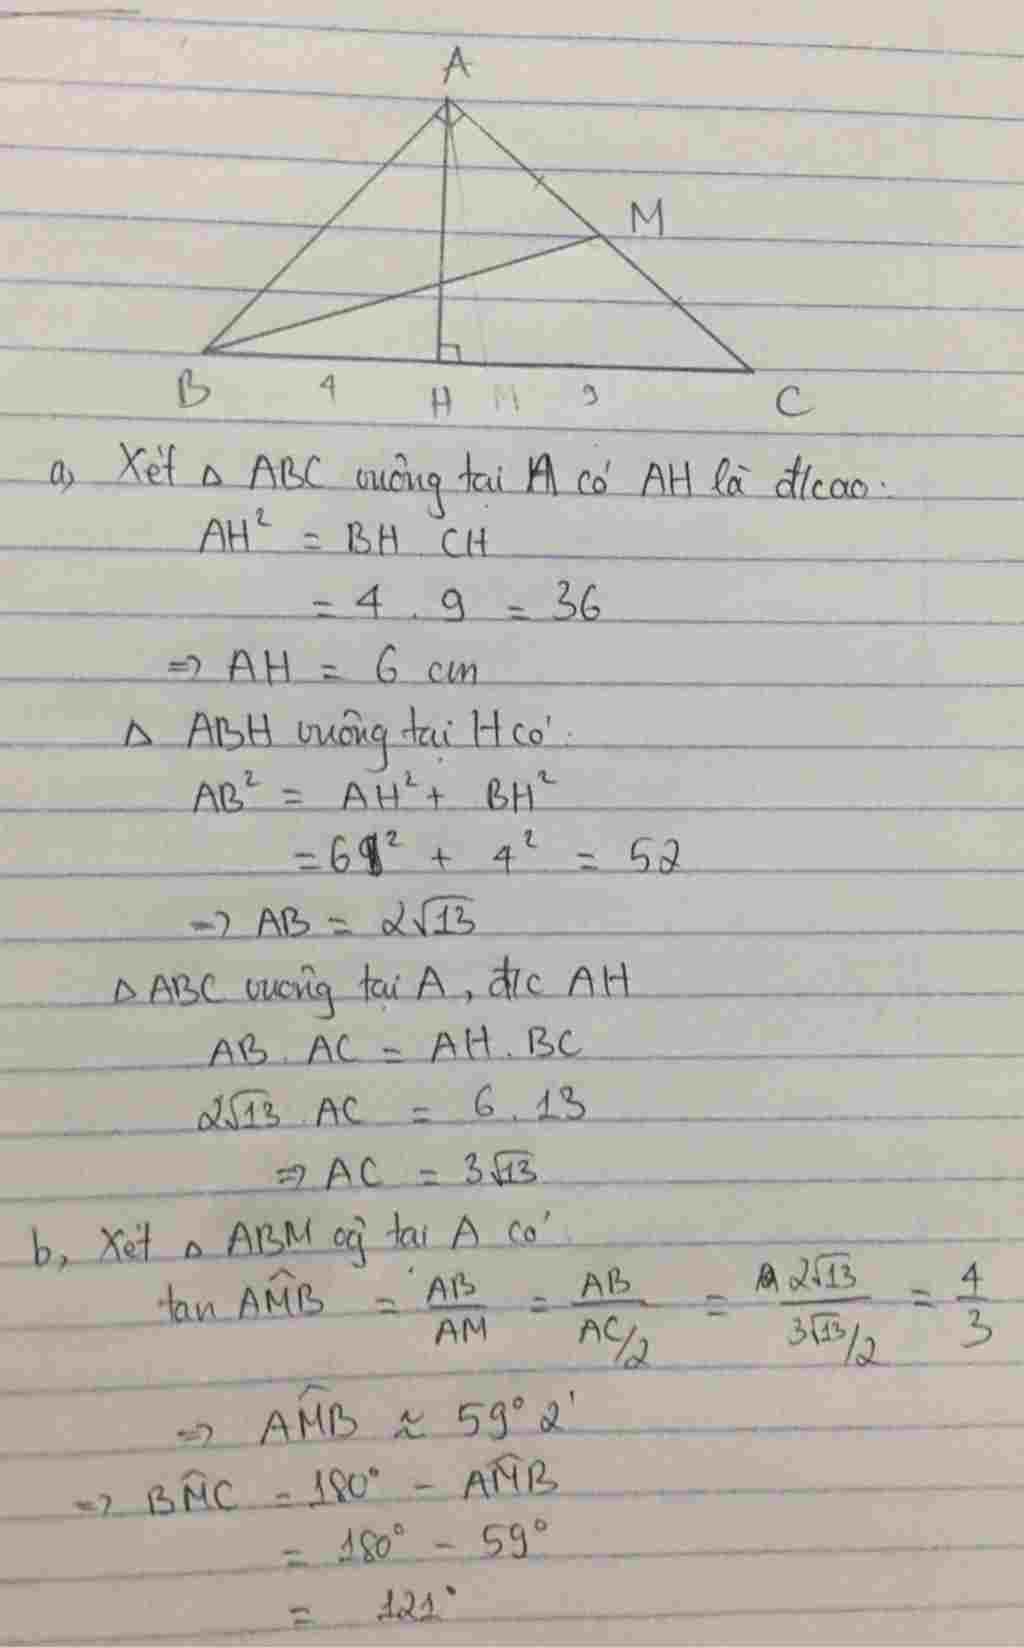 A
M
B 4 H M 9 C
a, Xét △ ABC vuông tại A có AH là đ/cao:
AH² = BH . CH
= 4 . 9 = 36
=> AH = 6 cm
△ ABH vuông tại H có:
AB² = AH² + BH²
= 6² + 4² = 52
=> AB = 2√13
△ ABC vuông tại A, đ/c AH
AB . AC = AH . BC
2√13 . AC = 6 . 13
=> AC = 3√13
b, Xét △ ABM tại A có
tan AM̂B = AB/AM = AB/(AC/2) = 2√13/(3√13/2) = 4/3
=> AM̂B ≈ 59° 2'
=> BM̂C = 180° - AM̂B
= 180° - 59°
= 121°